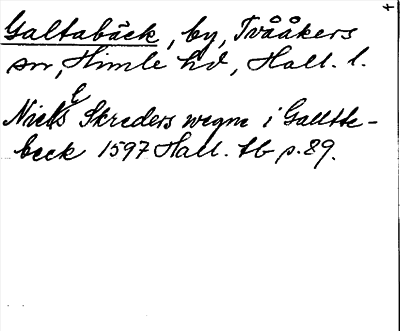 Galtabäck, by, Tvååkers
sn, Himle hd, Hall. l.
Niels Skreders wegne i Galtte-
beck 1597 Hall. tb p. 89.